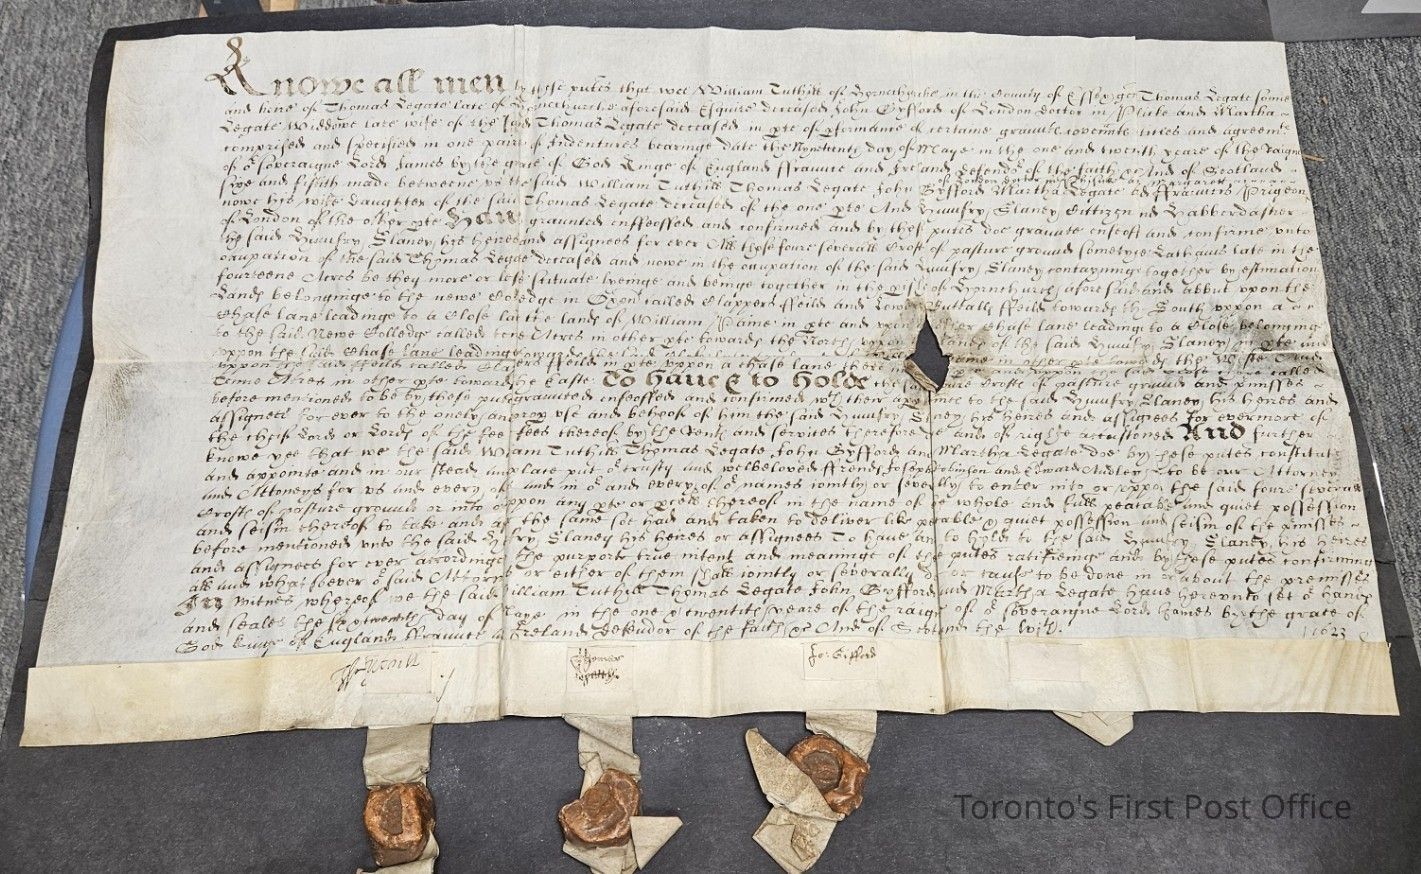 Knowe all men by these putes that wee William Tuthill of Hornechurche in the County of Essex gent Thomas Legate sonne
and heire of Thomas Legate late of Hornechurche aforesaid Esquire deceased John Gyfford of London doctor in Phisicke and Martha
Legate Widdowe late wife of the said Thomas Legate deceased in pte of pformance of certaine graunte covennte titles and agreemte
comprised and specified in one paire of Indentures bearinge date the Nyneteenth day of Maye in the one and twentith yeare of the Raigne
of or soveraigne Lord James by the grace of God Kinge of England ffraunce and Ireland defendor of the faith &c And of Scotland
fyve and fiftith made betweene us the said William Tuthill Thomas Legate John Gyfford Martha Legate
nowe his wife daughter of the said Thomas Legate deceased of the one pte And Humfry Slaney Cittizen and Habberdasher
of London of the other pte Have graunted infeoffed and confirmed and by these putes doe graunte infeoff and confirme unto
the said Humfry Slaney his heires and assignees for ever All those foure severall Crofte of pasture ground sometyme Lathams late in the
occupation of the said Thomas Legate deceased and nowe in the occupation of the said Humfry Slaney contayninge together by estimation
fourteene Acres be they more or lesse situate lyeinge and beinge together in the pishe of Hornchurch aforesaid and abbut uppon the
Lands belonginge to the newe Colledge in Oxon called Clappers ffeild and towards the South uppon a
Chase lane leadinge to a Close late the lands of William Paine in pte and uppon chase lane leadinge to a Close belonging
to the said Newe Colledge called tene Acres in other pte towards the North uppon lands of the said Humfry Slaney in pte
uppon the said Chase lane leadinge
uppon the said ffeild called Clapers ffeild in pte uppon a chase lane in other pte towards the West And
Tenne Acres in other pte towards the Easte To have & to holde the said foure Crofte of pasture ground and pmisses
before mencioned to be by these putes graunted infeoffed and confirmed with their appurtenance to the said Humfry Slaney his heires and
assignees for ever to the onely and propr use and behoof of him the said Humfry Slaney his heires and assignees for evermore of
the chief Lord or Lords of the fee or fees thereof by the rente and services therefore due and of right accustomed And further
knowe yee that we the said William Tuthill Thomas Legate John Gyfford and Martha Legate doe by these putes constitute
and appointe and in our stead and place put or trusty and welbeloved ffrends Joseph Robinson and Edward Audley to be our Attorney
and Attorneys for us and every of us and in or and every of or names iointly or severally to enter into or uppon the said foure severall
Crofte of pasture ground or into or uppon any pte or pcell thereof in the name of the whole and full peacable and quiet possession
and seisin thereof to take and after the same soe had and taken to deliver like peacable & quiet possession and seisin of the pmisses
before mencioned unto the said Humfry Slaney his heires or assignees To have and to holde to the said Humfry Slaney his heires
and assignees for ever accordinge to the purporte true intent and meaninge of these putes ratifieinge and by these putes confirming
all and whatsoever or said Attorneys or either of them shall iointly or severally doe or cause to be done in or about the premisses
In witnes whereof we the said William Tuthill Thomas Legate John Gyfford and Martha Legate have hereunto set or hands
and seales the day of Maye in the one & twentith yeare of the raigne of or soveraigne Lord James by the grace of
God Kinge of England ffraunce and Ireland defendor of the faith &c And of Scotland the
1623
Wm Tuthill
Thomas Legatte
Jo: Gifford
Toronto's First Post Office